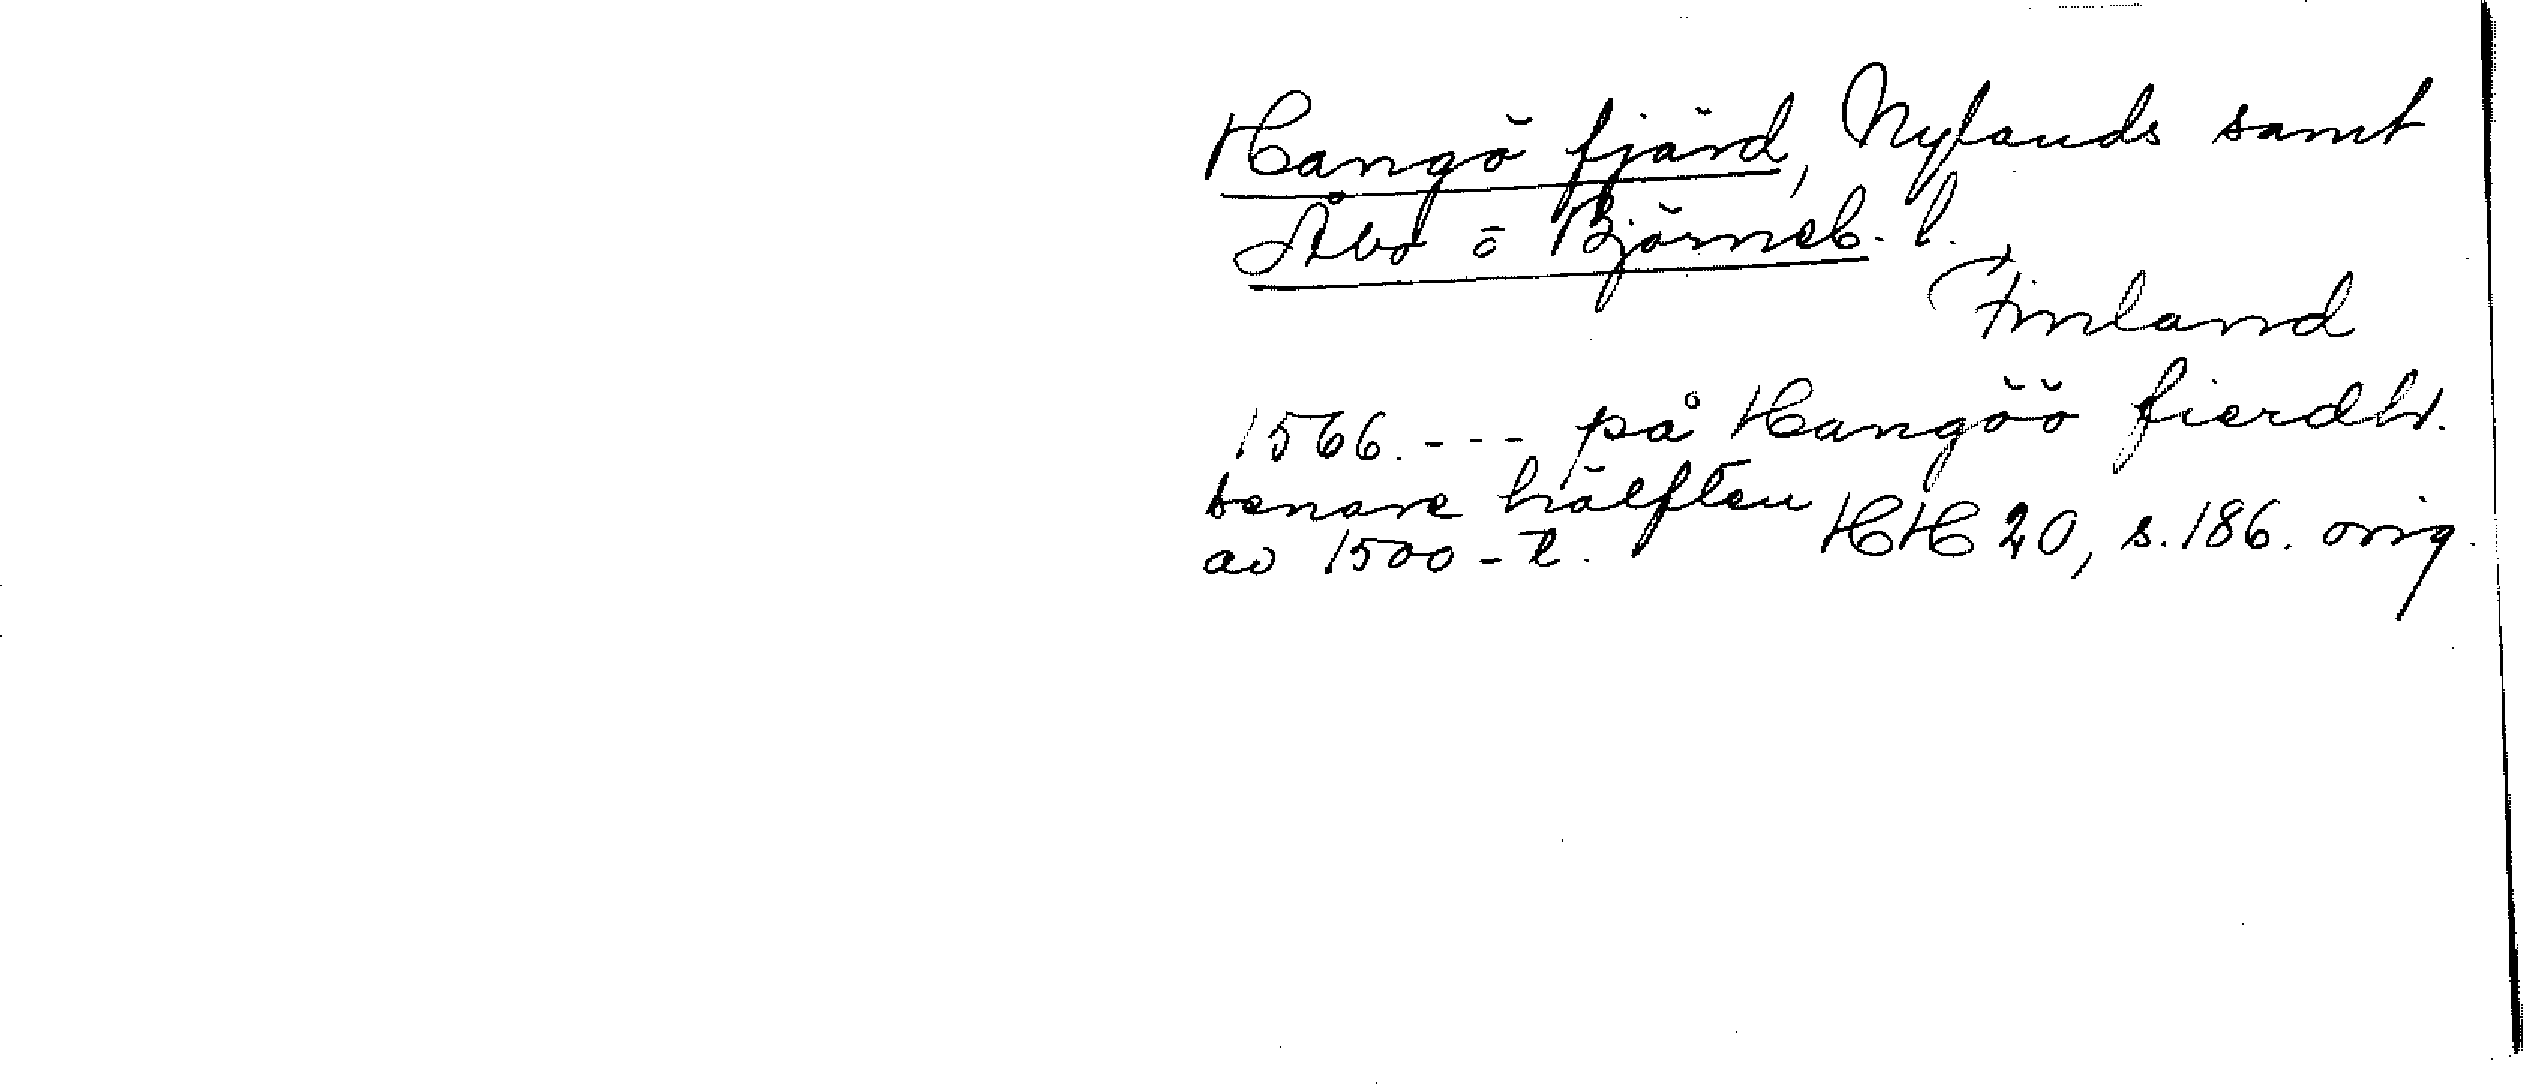 Hangö fjärd, Nylands samt
Åbo o Björneb. l.
Finland
1566. --- på Hangöö fierdh.
senare hälften
av 1500-t. HH 20, s. 186. orig.